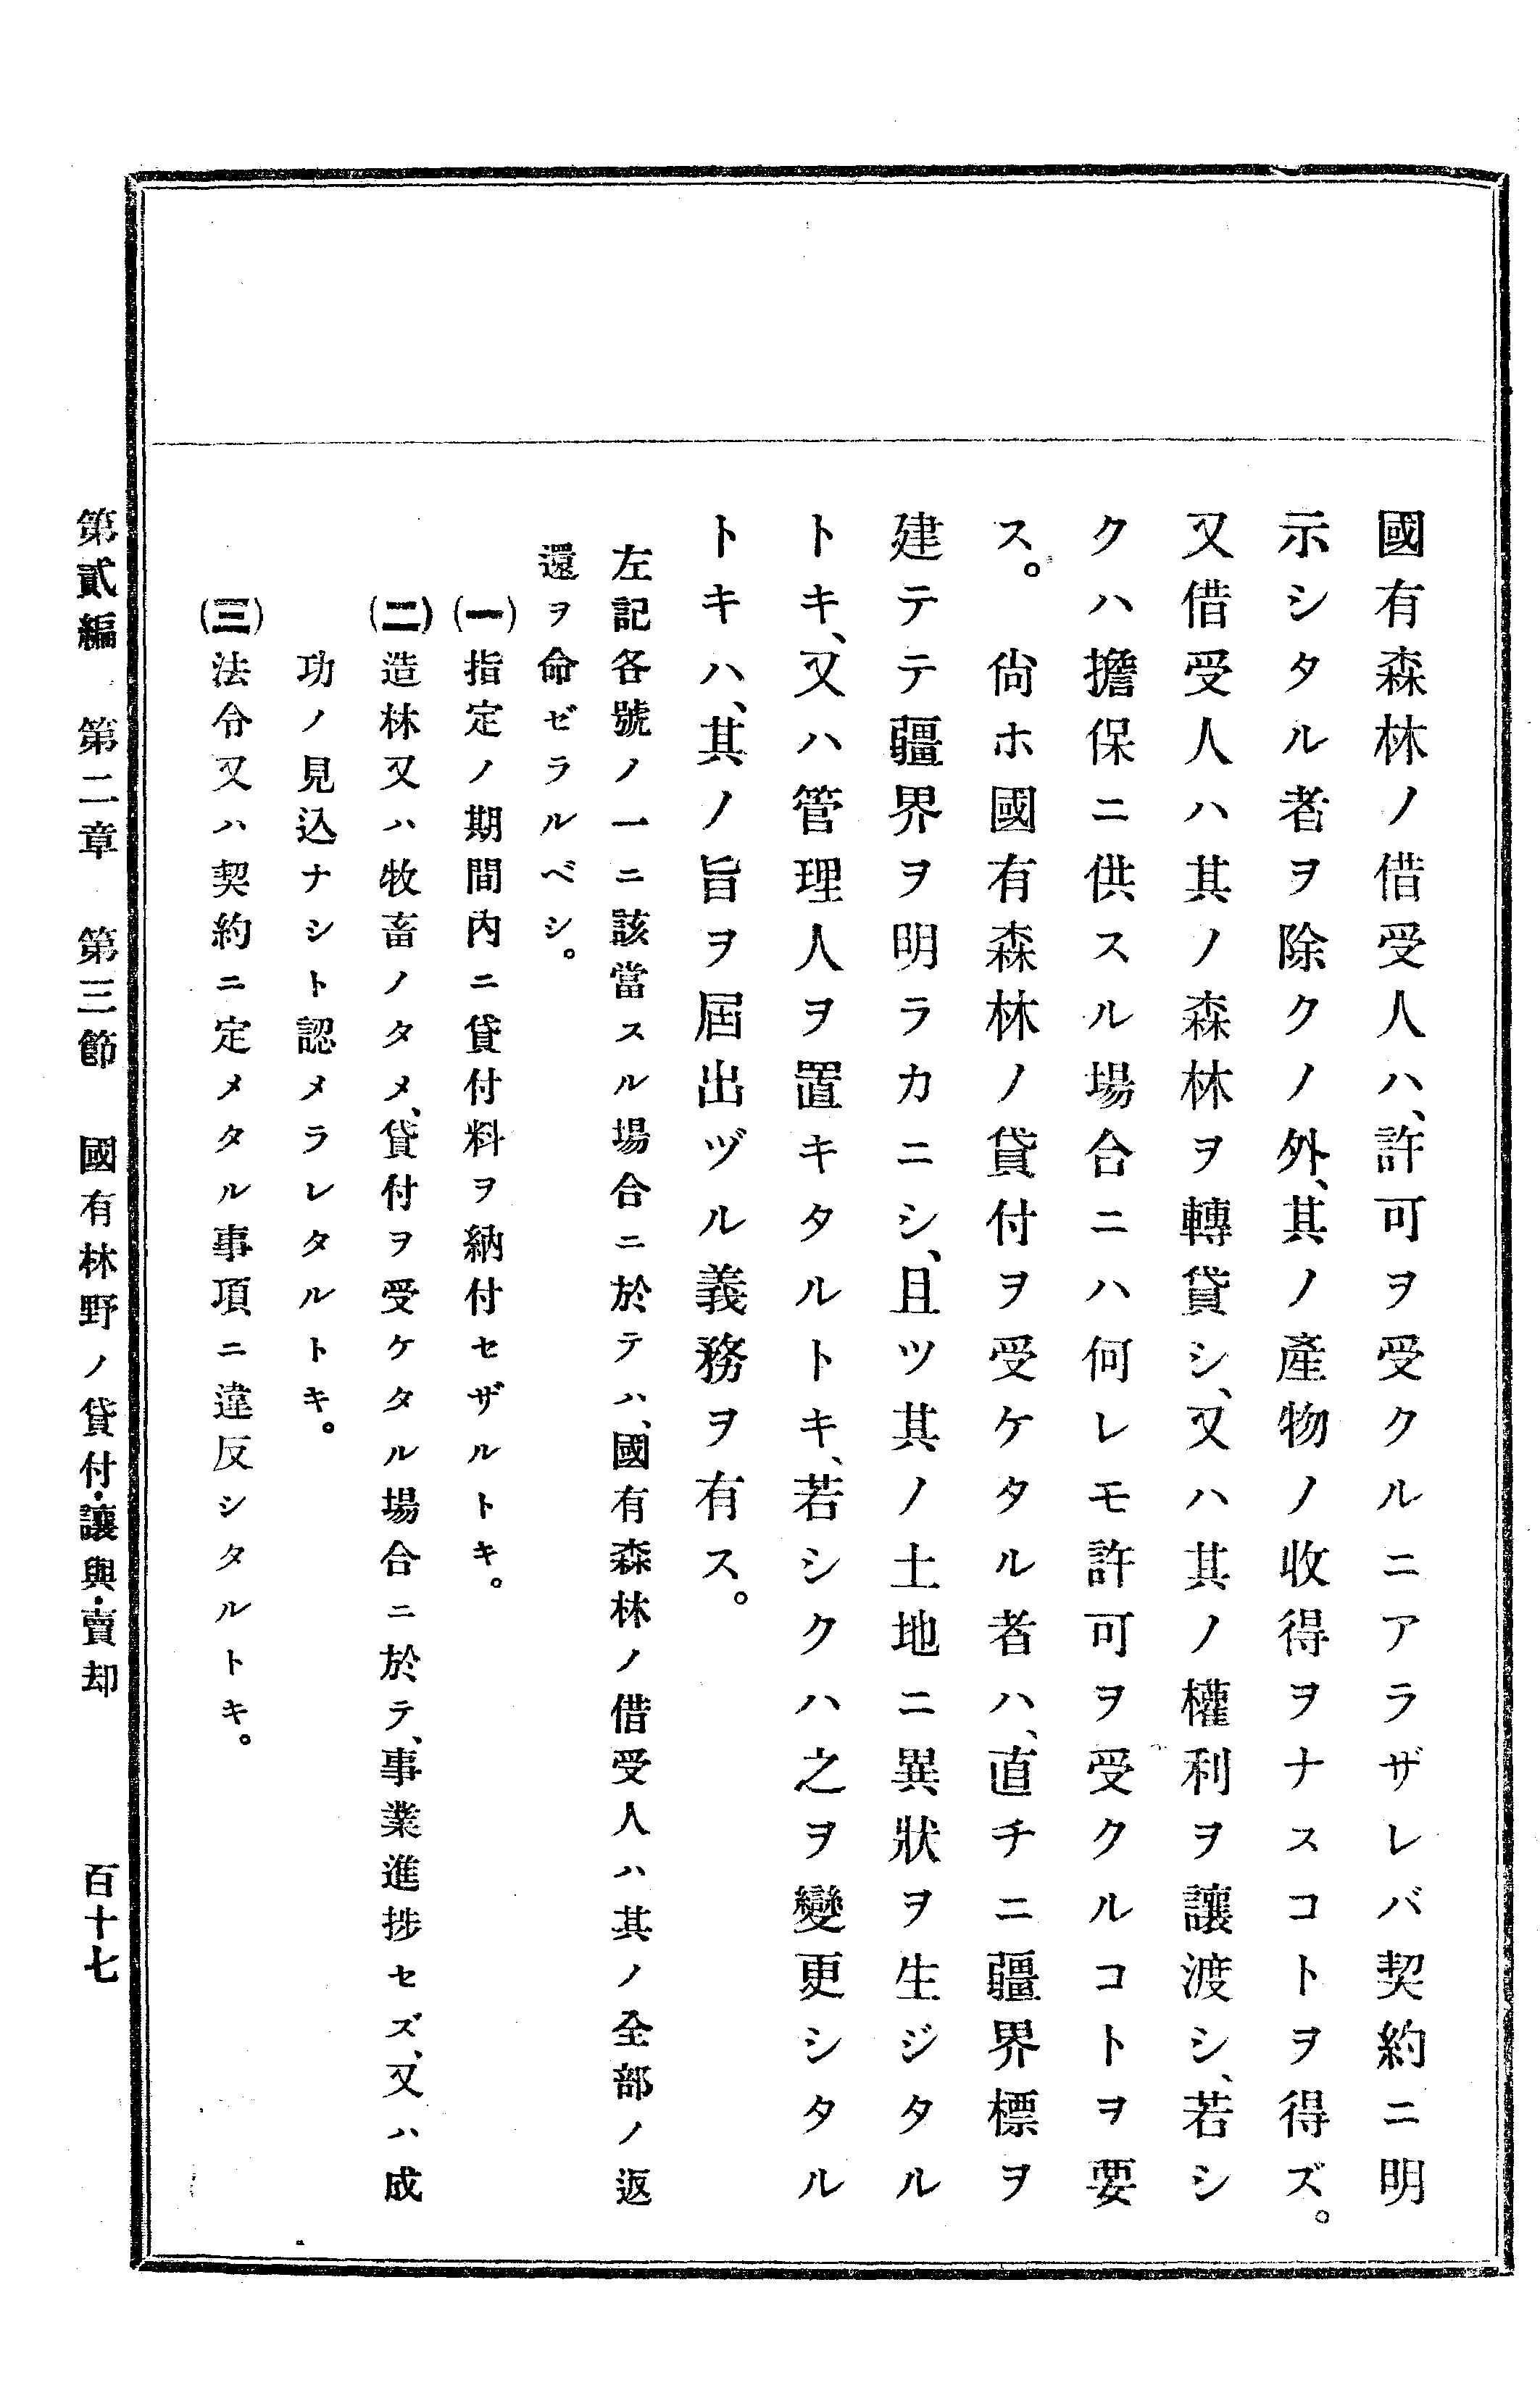 國有森林ノ借受人ハ、許可ヲ受クルニアラザレバ契約ニ明
示シタル者ヲ除クノ外、其ノ產物ノ收得ヲナスコトヲ得ズ。
又借受人ハ其ノ森林ヲ轉貸シ、又ハ其ノ權利ヲ讓渡シ、若シ
クハ擔保ニ供スル場合ニハ何レモ許可ヲ受クルコトヲ要
ス。　尙ホ國有森林ノ貸付ヲ受ケタル者ハ、直チニ疆界標ヲ
建テテ疆界ヲ明ラカニシ、且ツ其ノ土地ニ異狀ヲ生ジタル
トキ、又ハ管理人ヲ置キタルトキ、若シクハ之ヲ變更シタル
トキハ、其ノ旨ヲ屆出ヅル義務ヲ有ス。
左記各號ノ一ニ該當スル場合ニ於テハ、國有森林ノ借受人ハ其ノ全部ノ返
還ヲ命ゼラルベシ。
(一)指定ノ期間內ニ貸付料ヲ納付セザルトキ。
(二)造林又ハ牧畜ノタメ、貸付ヲ受ケタル場合ニ於テ、事業進捗セズ、又ハ成
功ノ見込ナシト認メラレタルトキ。
(三)法令又ハ契約ニ定メタル事項ニ違反シタルトキ。
第貳編　第二章　第三節　國有林野ノ貸付・讓與・賣却　百十七